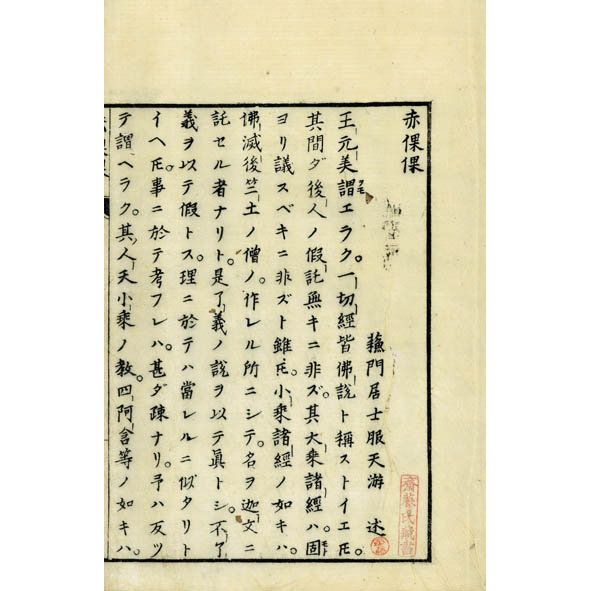 赤倮倮
蘓門居士服天游 述
王元美謂ヲモエラク。一切經皆佛說ト稱ストイエ𪜈。
其間ダ後人ノ假託無キニ非ズ。其大乘諸經ハ。固モト
ヨリ議スベキニ非ズト雖𪜈。小乘諸經ノ如キハ。
佛滅後竺土ノ僧ノ。作レル所ニシテ。名ヲ迦文ニ
託セル者ナリト。是了義ノ說ヲ以テ眞トシ。不了
義ヲ以テ假トス。理ニ於テハ當レルニ似タリト
イヘ𪜈。事ニ於テ考フレハ。甚ダ疎ナリ。予ハ反ツ
テ謂ヘラク。其人天小乘ノ教。四阿含等ノ如キハ。
齋藤氏藏書